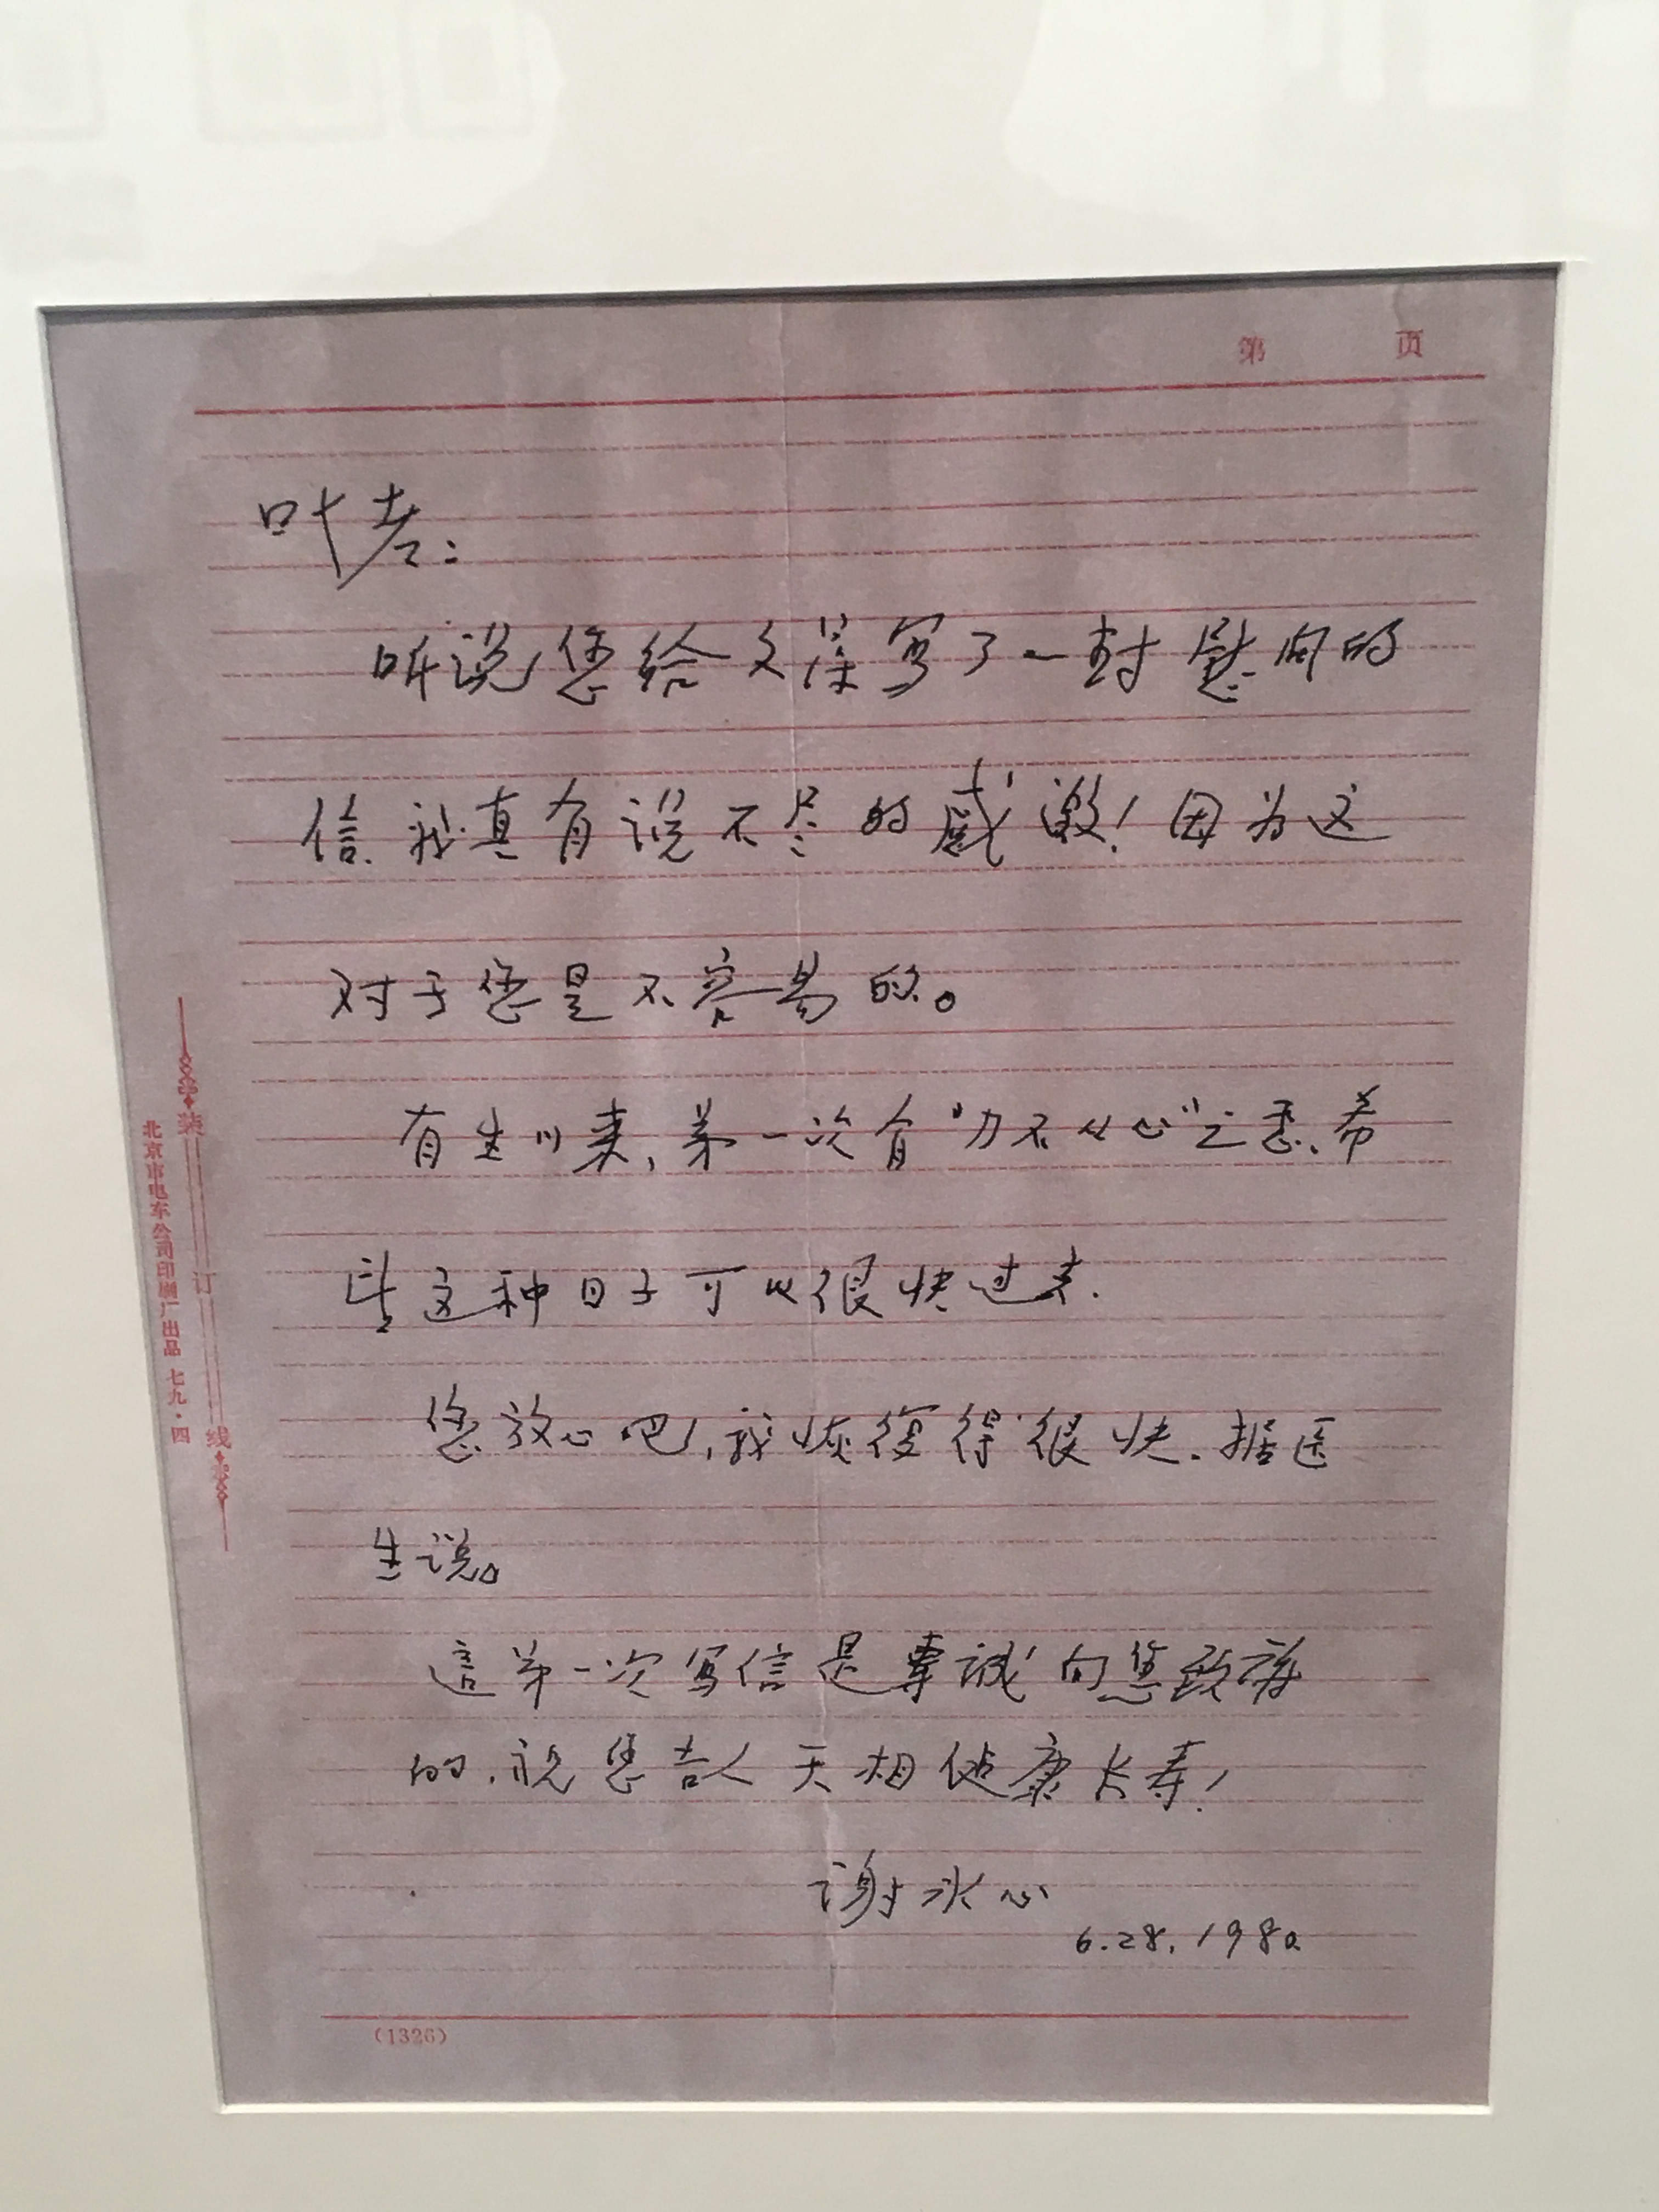 第 页
叶老：
听说您给文藻写了一封慰问的
信、我真有说不尽的感激！因为这
对于您是不容易的。
有生以来，第一次有“力不从心”之悉、希
望这种日子可以很快过去.
您放心吧，我恢復得很快、据医
生说。
這第一次写信是專誠向您致谢
的，祝您吉人天相健康长寿！
谢冰心
6.28.1980
装订线
北京市电车公司印刷厂出品 七九·四
(1326)